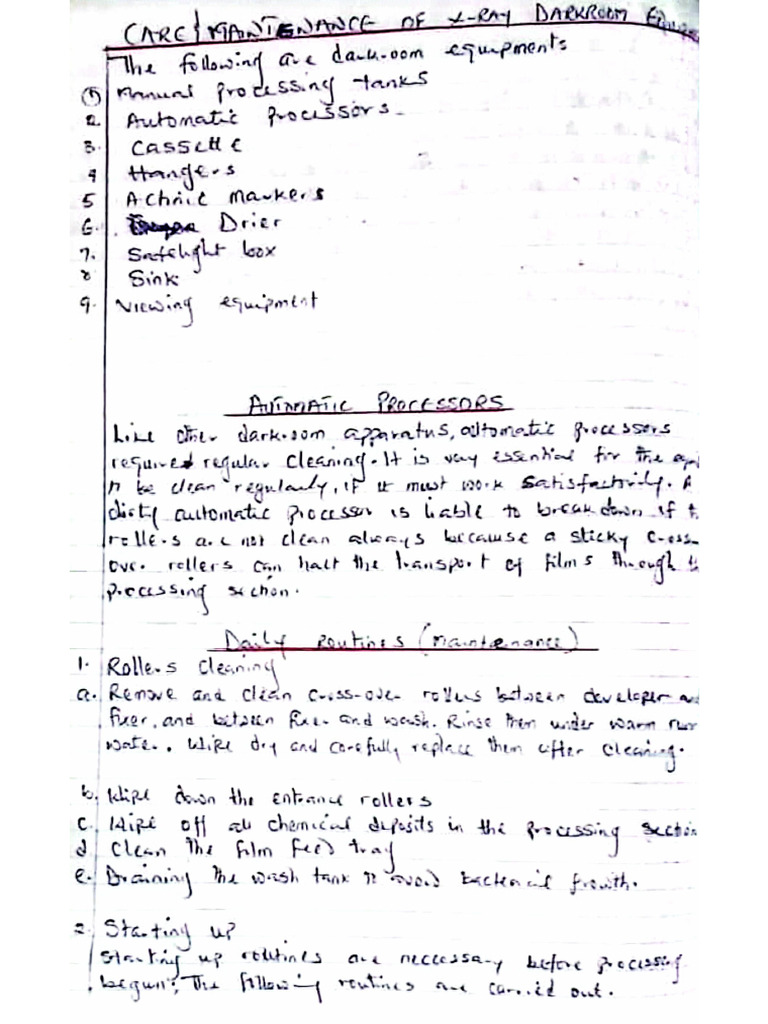 CARE/MAINTENANCE OF X-RAY DARKROOM
The following are darkroom equipments
1 Manual processing tanks
2. Automatic Processors.
3. Cassette
4 Hangers
5 Achnic Markers
6. Drier
7. Safelight box
8 Sink
9. Viewing equipment
AUTOMATIC PROCESSORS
Like other darkroom apparatus, automatic processors
required regular cleaning. It is very essential for the
to be clean regularly, if it must work satisfactorily. A
dirty automatic processor is liable to breakdown if
rollers are not clean always because a sticky cross
over rollers can halt the transport of films through
processing section.
Daily Routines (Maintenance)
1. Rollers Cleaning
a. Remove and clean cross-over rollers between developer
fixer, and between fixer and wash. Rinse them under warm
water. Wipe dry and carefully replace them after cleaning.
b. Wipe down the entrance rollers
c. Wipe off all chemical deposits in the processing section
d Clean the film feed tray
e. Draining the wash tank to avoid bacterial growth.
2. Starting up
Starting up routines are neccessary before processing
begun; The following routines are carried out.